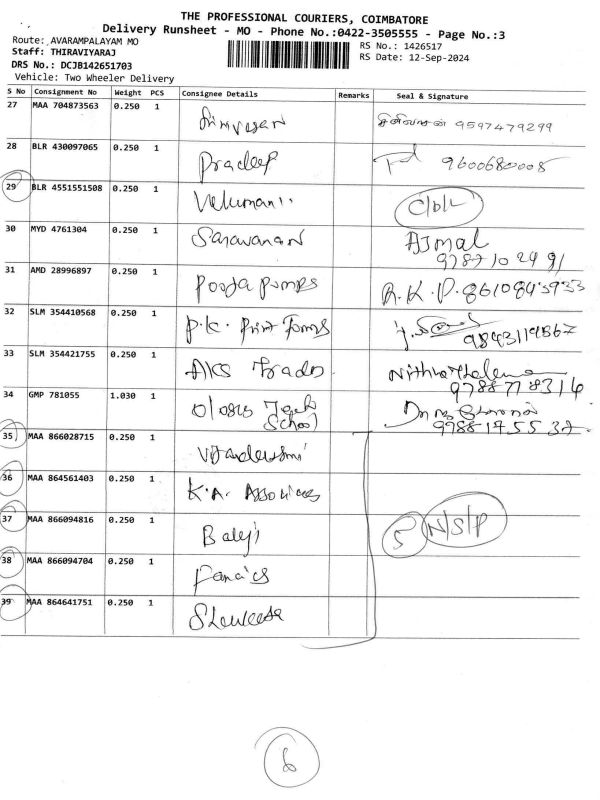 THE PROFESSIONAL COURIERS, COIMBATORE
Delivery Runsheet - MO - Phone No.:0422-3505555 - Page No.:3
Route: AVARAMPALAYAM MO
RS No.: 1426517
Staff: THIRAVIYARAJ
RS Date: 12-Sep-2024
DRS No.: DCJB142651703
Vehicle: Two Wheeler Delivery
S No Consignment No Weight PCS Consignee Details Remarks Seal & Signature
27 MAA 704873563 0.250 1 Srinivasan சீனிவாசன் 9597479299
28 BLR 430097065 0.250 1 Pradeep 9600680008
29 BLR 4551551508 0.250 1 Velumani C/D/L
30 MYD 4761304 0.250 1 Saravanan AJmal
9787102491
31 AMD 28996897 0.250 1 Pooja pumps R.K.P. 8610843933
32 SLM 354410568 0.250 1 P.K. Print Forms 9843114867
33 SLM 354421755 0.250 1 AKS Trades
34 GMP 781055 1.030 1 School
35 MAA 866028715 0.250 1
36 MAA 864561403 0.250 1 K.A. Associates
37 MAA 866094816 0.250 1 Balaji 5 N/S/P
38 MAA 866094704 0.250 1
39 MAA 864641751 0.250 1
6